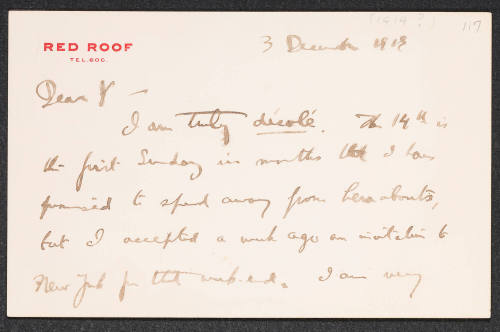 [1914?]
117
RED ROOF
TEL. 600.
3 December 1913
Dear V —
I am truly désolé. The 14th is
the first Sunday in months that I have
promised to spend away from hereabouts,
but I accepted a week ago an invitation to
New York for that week-end. I am very